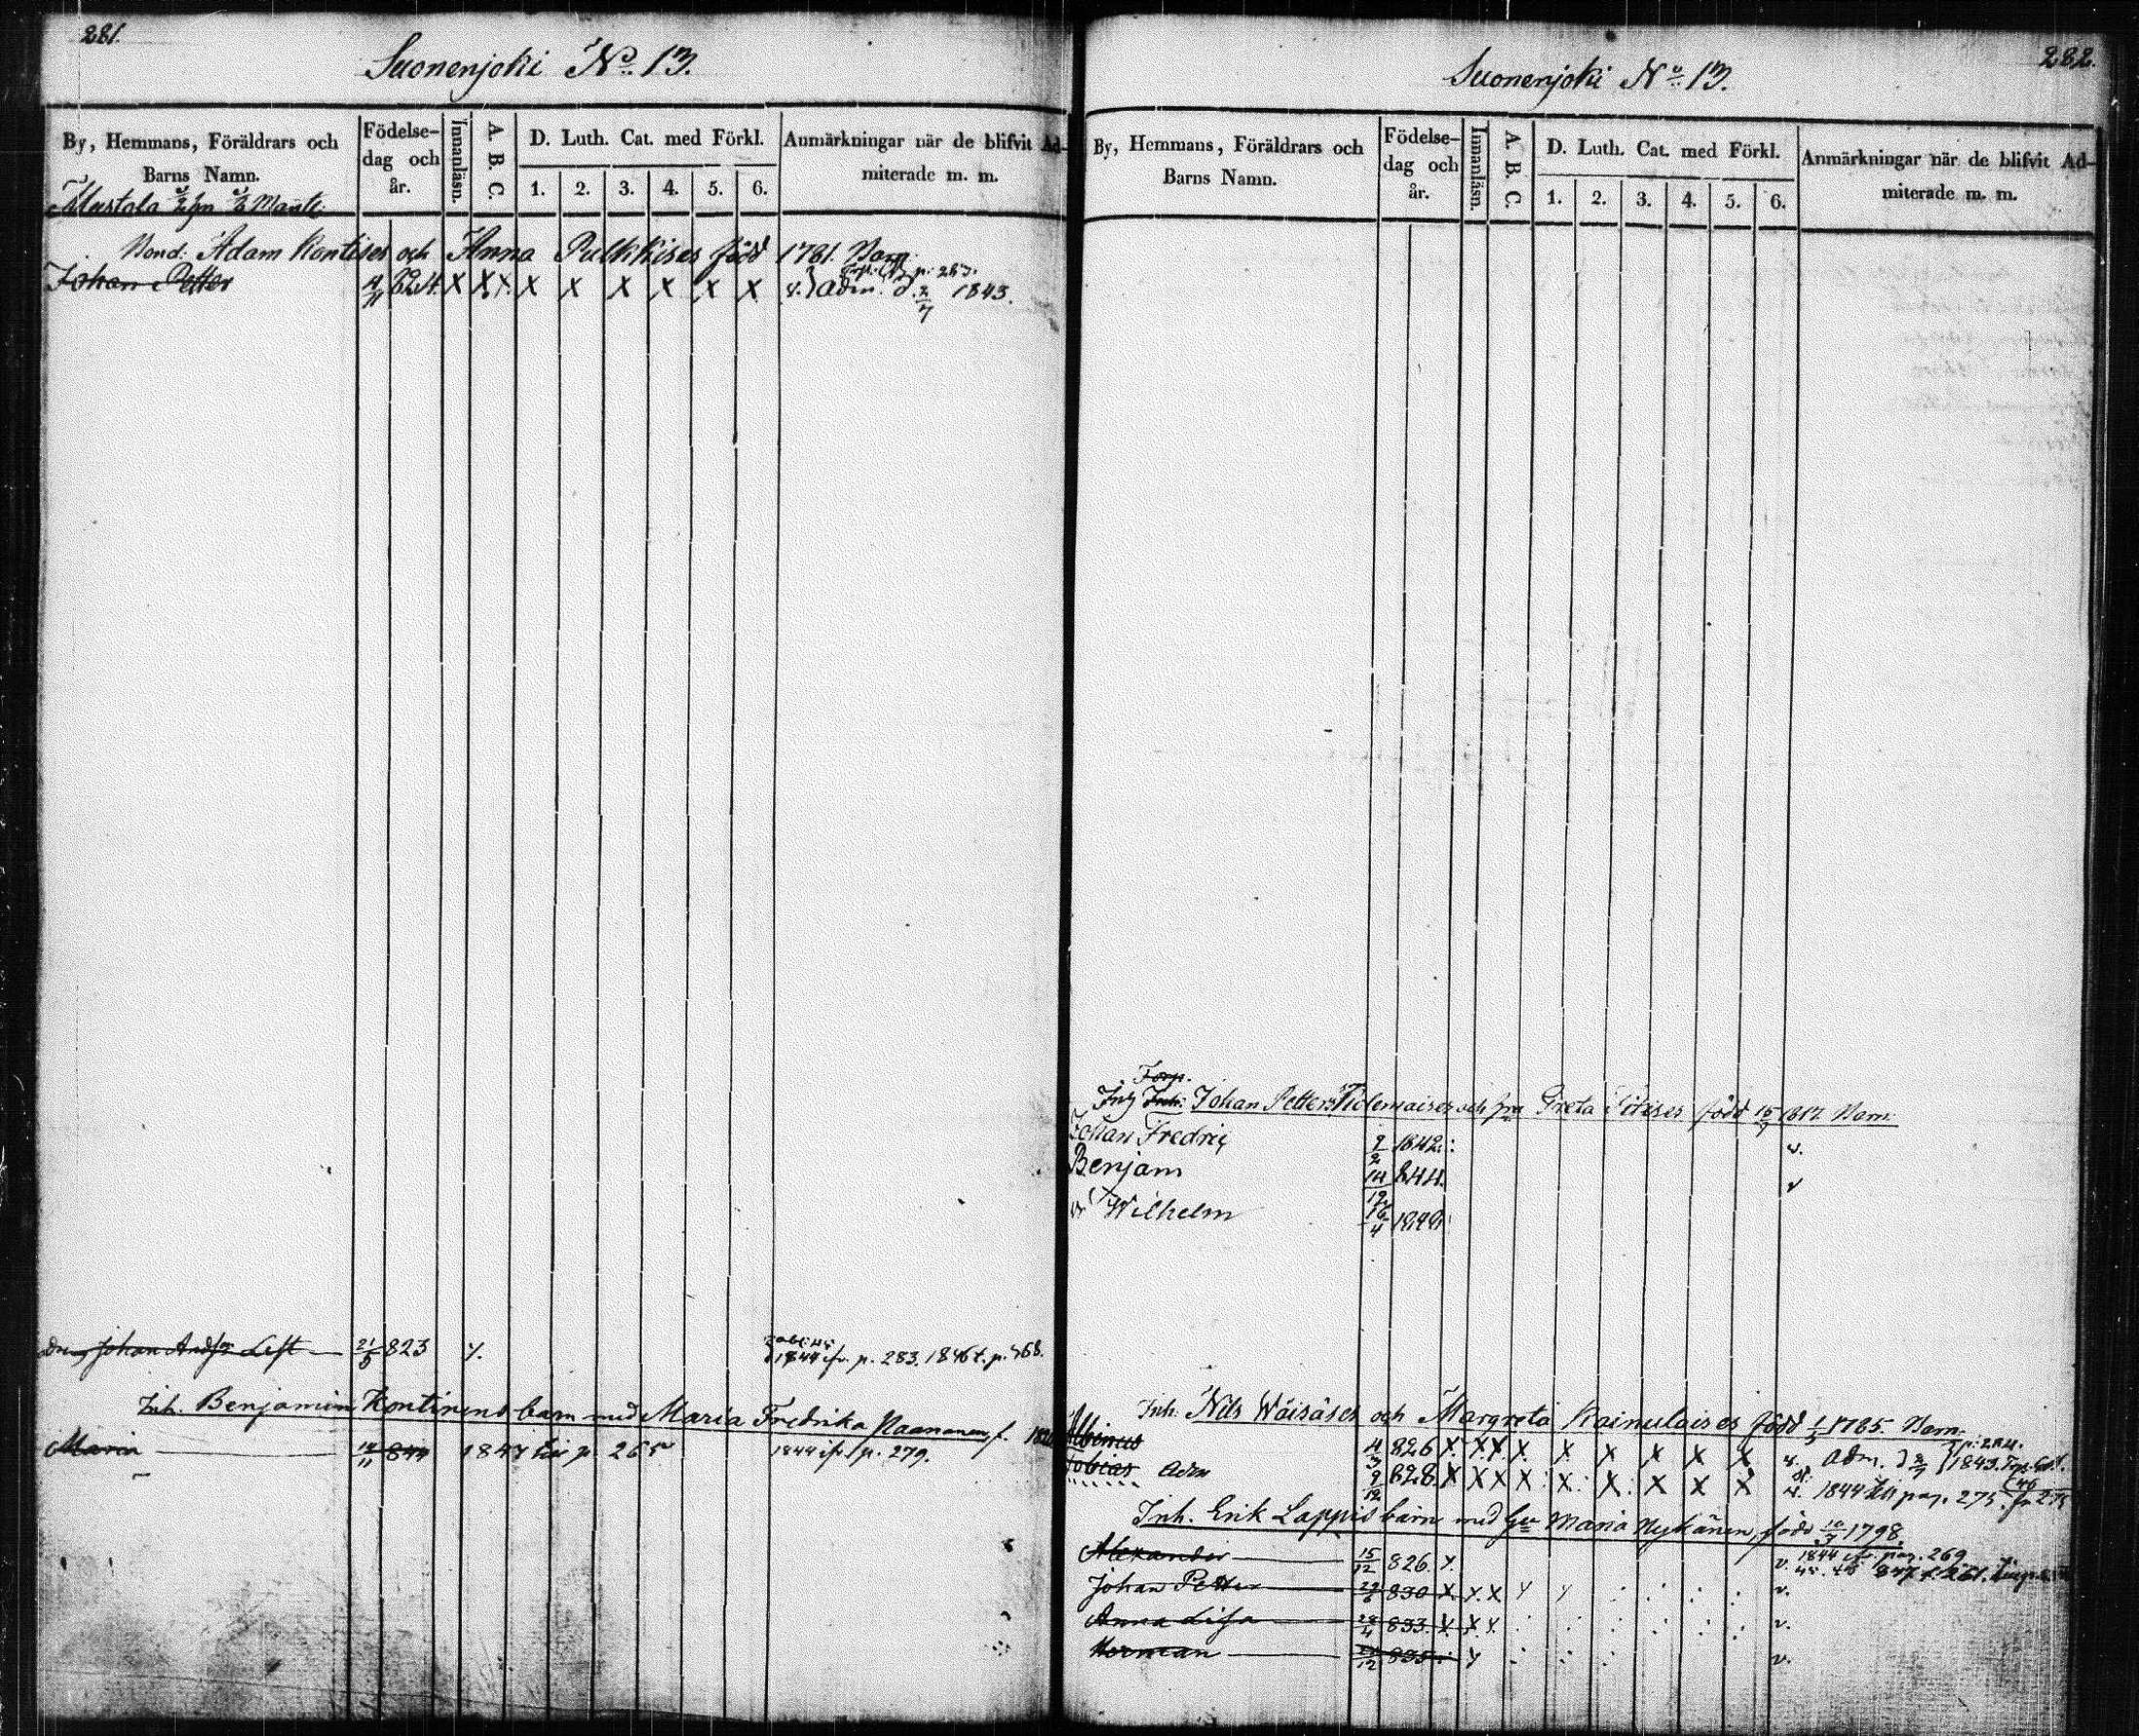 281.
Suonenjoki No. 13.
By, Hemmans, Föräldrars och Barns Namn.
Födelse-dag och år.
Innanläsn.
A. B. C.
D. Luth. Cat. med Förkl.
1. 2. 3. 4. 5. 6.
Anmärkningar när de blifvit Ad-miterade m. m.
Mustola
Bond. Adam Kontises och Anna Pulkkises född 1781. Barn
Johan Petter 824. X X X X X X X X X v. adm. d. 2/7 1843.
p. 283.
Johan Ands. Lest 21/5 823 1844 ifr. p. 283. 1846 t. p. 268.
Inh. Benjamin Kontinens barn med Maria Fredrika Raananen f.
Maria 844 1847 till p. 265 1844 ifr. p. 279.
282.
Suonenjoki No. 13.
By, Hemmans, Föräldrars och Barns Namn.
Födelse-dag och år.
Innanläsn.
A. B. C.
D. Luth. Cat. med Förkl.
1. 2. 3. 4. 5. 6.
Anmärkningar när de blifvit Ad-miterade m. m.
Torp.
Inh. Johan Petter och Greta född 15/7 1817 Barn.
Johan Fredric 9/2 1842. v.
Benjam 14/12 844. v
Wilhelm 16/4 1849
Inh. Nils Wäisäses och Margreta Kainulaises född 1785. Barn.
Albinus 11/3 826 X. X X X. X X X X X v. adm. d. 2/7 1843.
Tobias adm 9/12 828. X X X X X X X X X v. 1844 till pag. 275.
Inh. Erik Lappis barn med Maria Nykänen, född 10/7 1798.
Alexander 15/12 826. X. v. 1844 ifr. pag. 269
Johan Petter 830 X. X. X v.
Anna Lisa 28/4 833. X X X. v.
Herman 835 v.